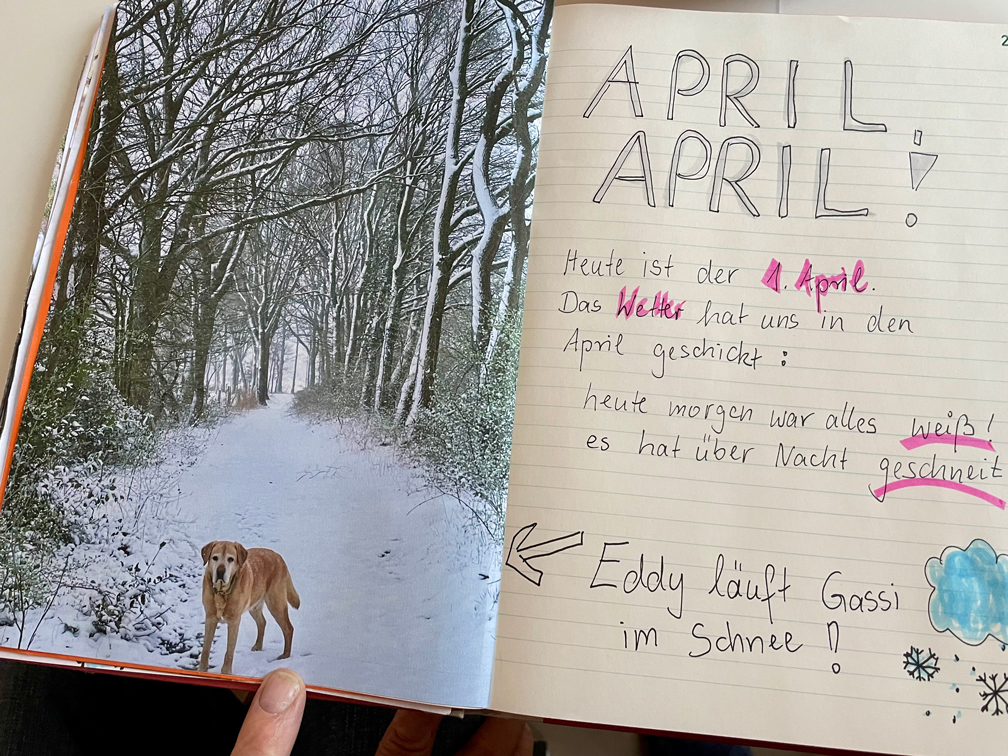 2
APRIL,
APRIL!
Heute ist der 1. April.
Das Wetter hat uns in den
April geschickt:
heute morgen war alles weiß!
es hat über Nacht geschneit
Eddy läuft Gassi
im Schnee!